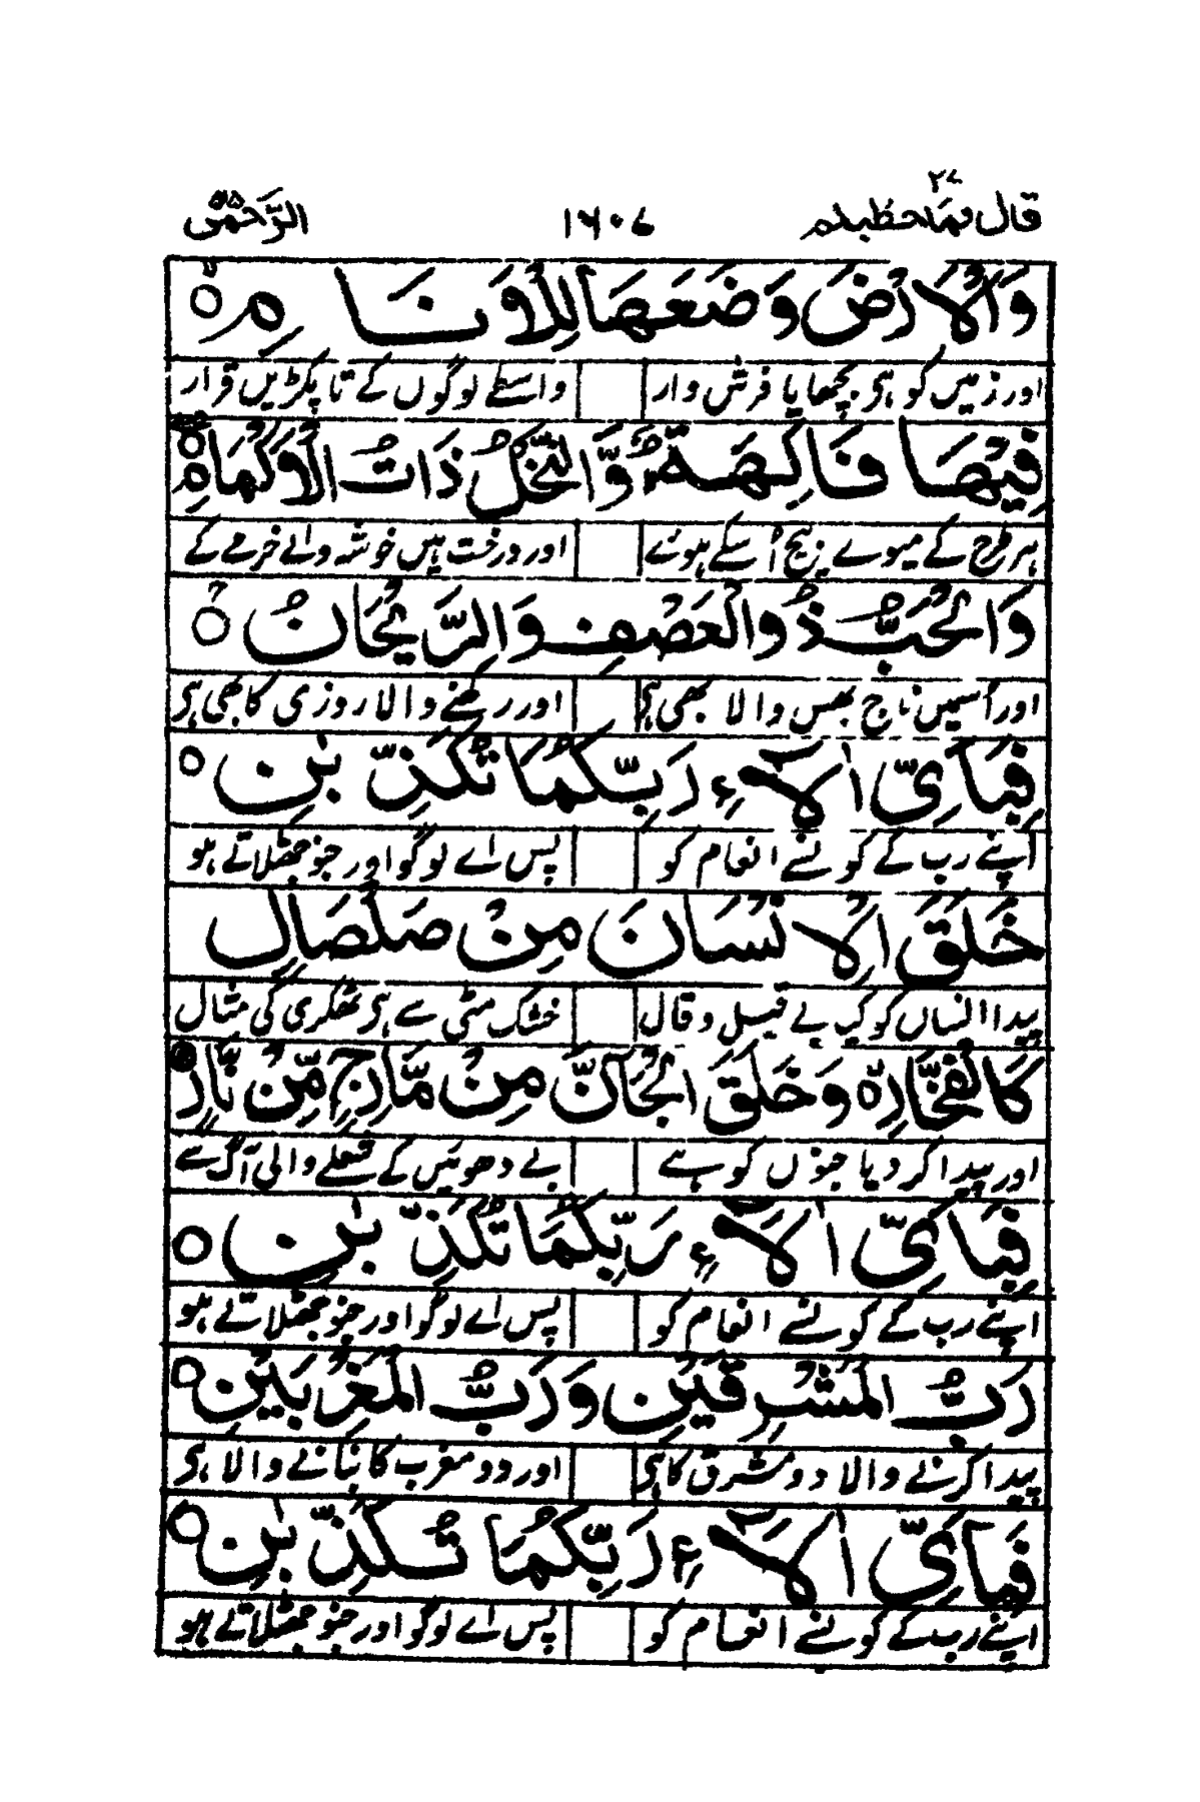 قال فما خطبکم ۲۷ ۱۶۰۷ الرحمن ۵۵
وَالْاَرْضَ وَضَعَهَا لِلْاَنَامِ ○
اور زمیں کو ہی بچھایا فرش وار واسطے لوگوں کے تا پکڑیں قرار
فِيْهَا فَاكِهَةٌ وَّالنَّخْلُ ذَاتُ الْاَكْمَامِ ○
ہر طرح کے میوے بیچ اسکے ہوئے اور درخت ہیں خوشہ والے خرمے کے
وَالْحَبُّ ذُو الْعَصْفِ وَالرَّيْحَانُ ○
اور اسمیں ناج بھس والا بھی ہی اور رکھنے والا روزی کا بھی ہی
فَبِاَيِّ اٰلَآءِ رَبِّكُمَا تُكَذِّبٰنِ ○
اپنے رب کے کونسے انعام کو پس اے لوگو اور جنو جھٹلاتے ہو
خَلَقَ الْاِنْسَانَ مِنْ صَلْصَالٍ
پیدا انساں کو کیا بے قیل و قال خشک مٹی سے ہی ٹھکری کی مثال
كَالْفَخَّارِ ○ وَخَلَقَ الْجَآنَّ مِنْ مَّارِجٍ مِّنْ نَّارٍ ○
اور پیدا کر دیا جنوں کو ہے بے دھوئیں کے شعلے والی آگ سے
فَبِاَيِّ اٰلَآءِ رَبِّكُمَا تُكَذِّبٰنِ ○
اپنے رب کے کونسے انعام کو پس اے لوگو اور جنو جھٹلاتے ہو
رَبُّ الْمَشْرِقَيْنِ وَرَبُّ الْمَغْرِبَيْنِ ○
پیدا کرنے والا دو مشرق کا ہی اور دو مغرب کا بنانے والا ہی
فَبِاَيِّ اٰلَآءِ رَبِّكُمَا تُكَذِّبٰنِ ○
اپنے رب کے کونسے انعام کو پس اے لوگو اور جنو جھٹلاتے ہو